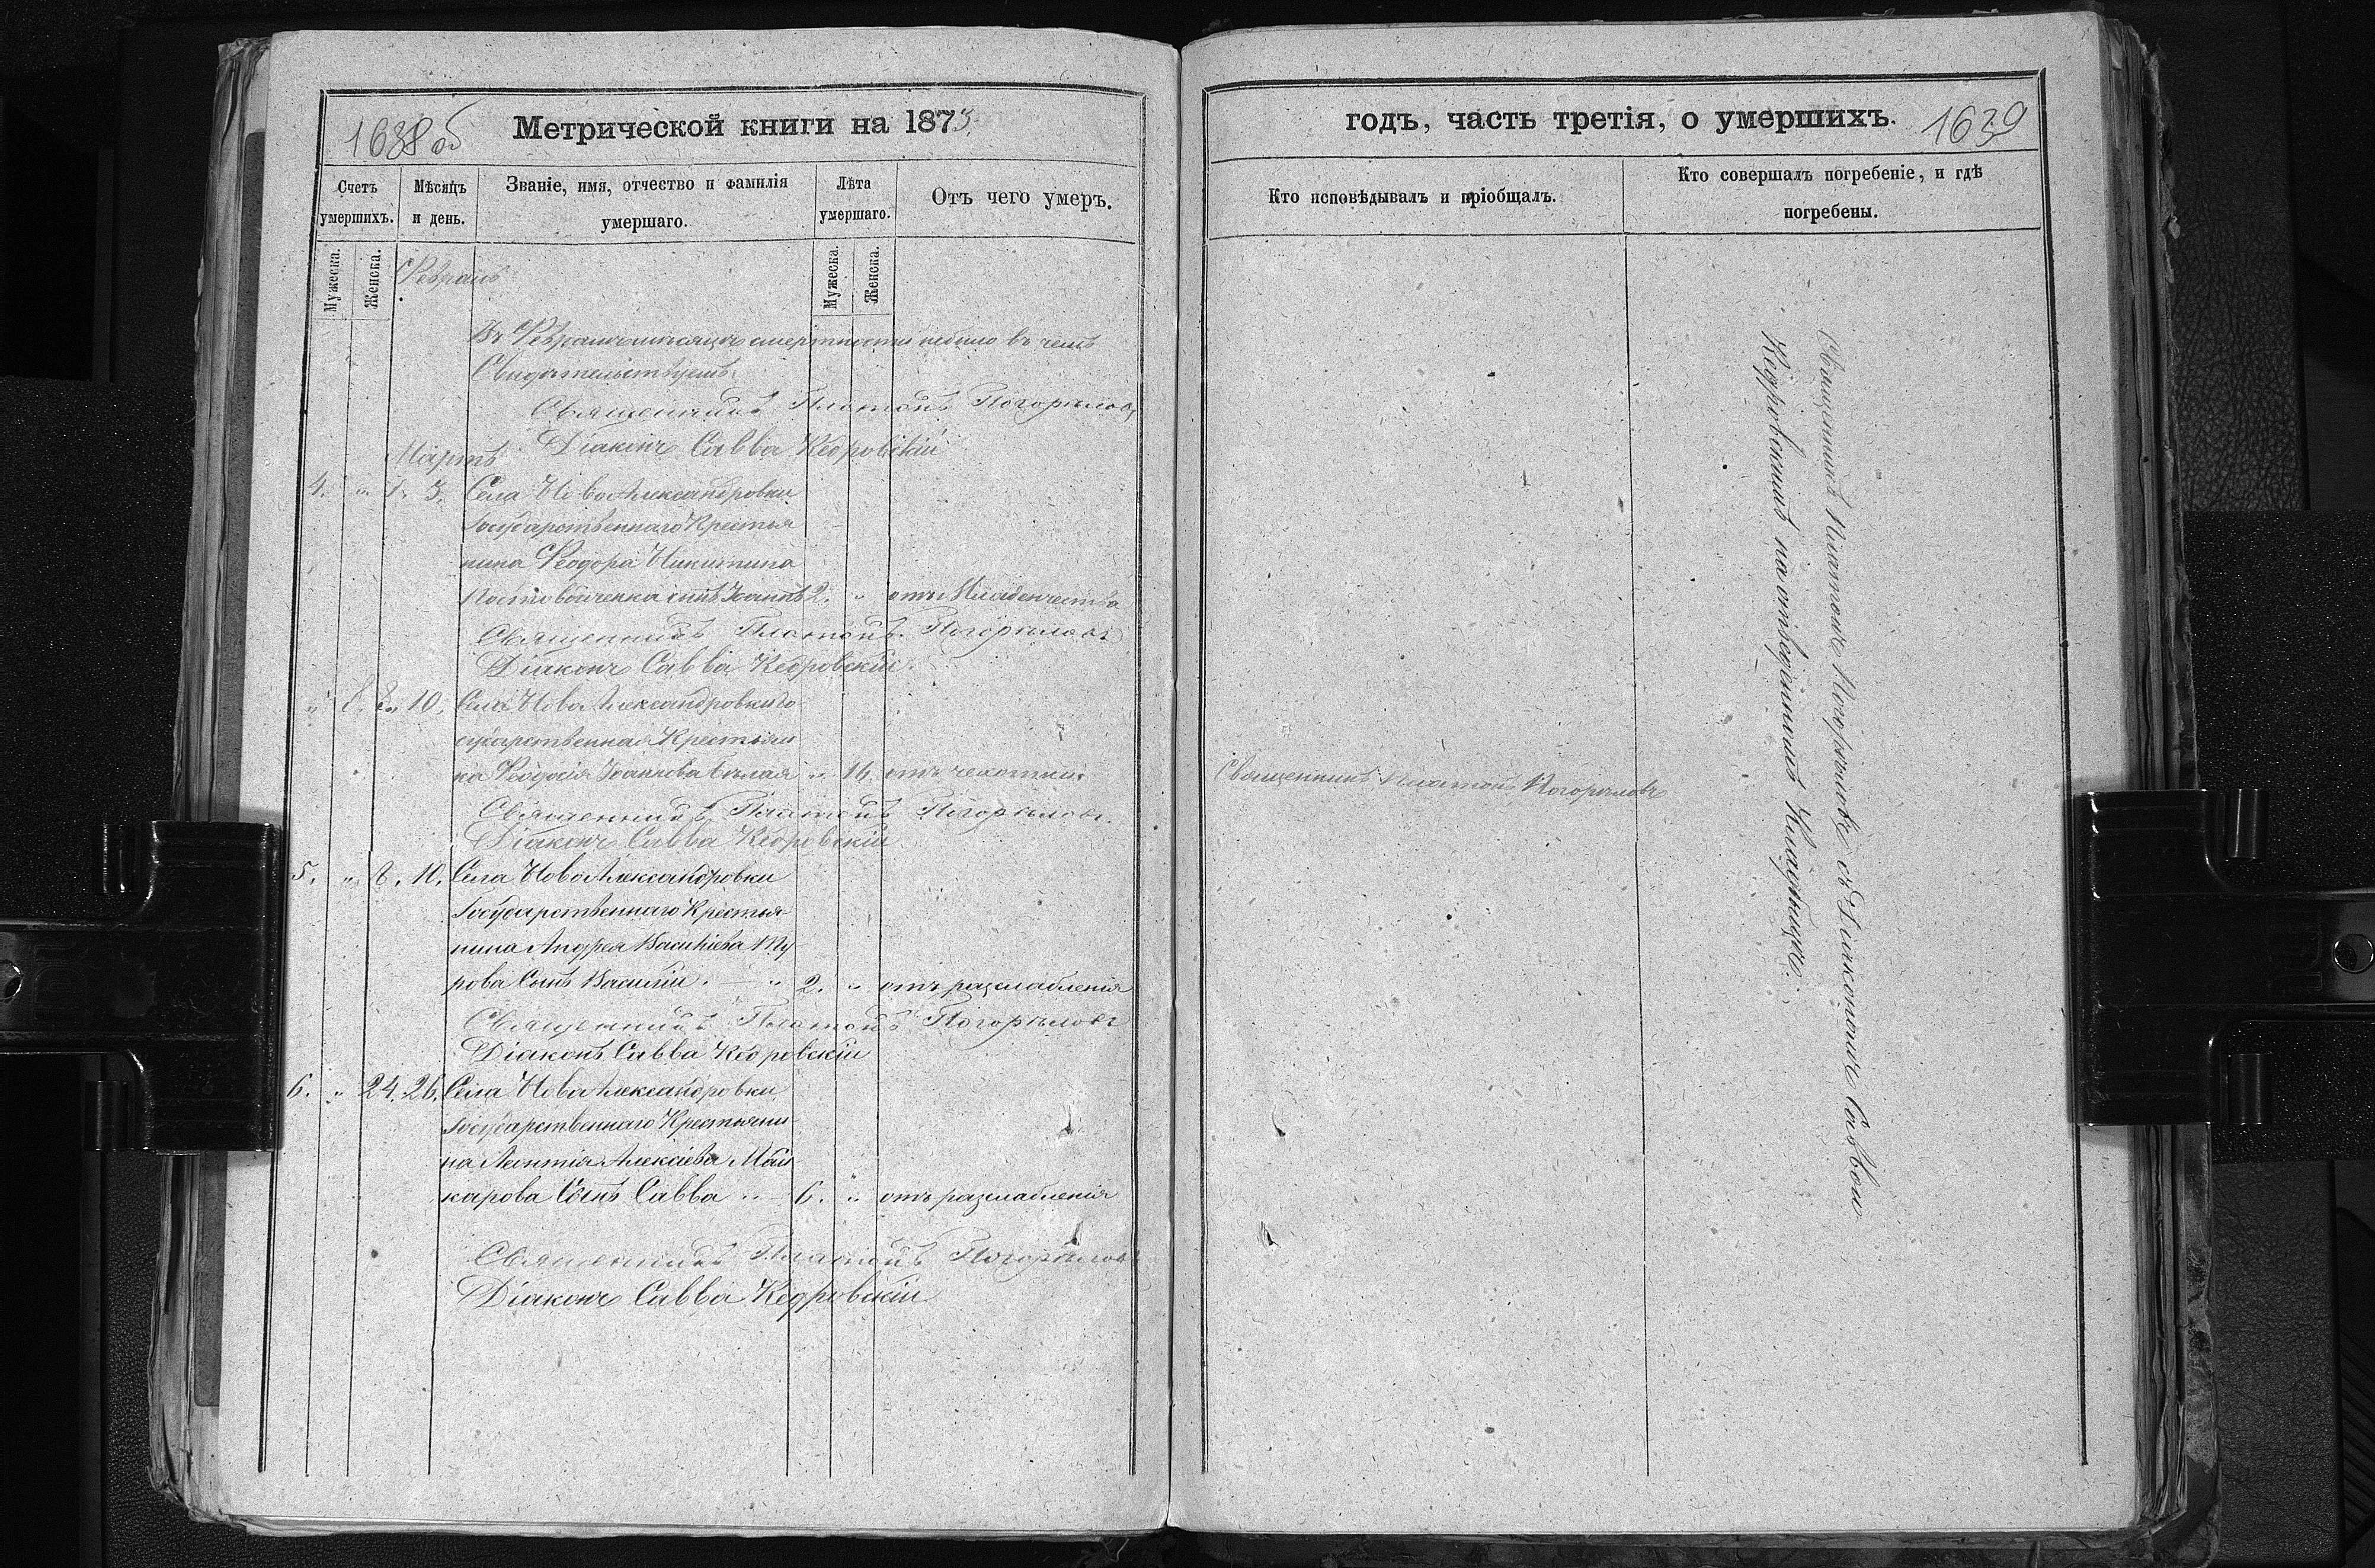 1638об
Метрической книги на 1873.
Счетъ умершихъ.
Мѣсяцъ и день.
Званіе, имя, отчество и фамилія умершаго.
Лѣта умершаго.
Отъ чего умеръ.
Мужеска.
Женска.
Мужеска.
Женска.
Февраль
Въ Февралѣ мѣсяцѣ смертности небыло въ чемъ
Свидѣтельствуемъ
Священникъ Платонъ Погорѣловъ
Діаконъ Савва Кедровскій
Мартъ
4. " 1. 3. Села НовоАлександровки
Государственнаго Крестья
нина Ѳеодора Никитина
сынъ Іоаннъ 2. " отъ Младенчества
Священникъ Платонъ Погорѣловъ
Діаконъ Савва Кедровскій
" 8. 8. 10. Села НовоАлександровки Го
сударственная Крестьян
ка Ѳеодосія Іоаннова Бѣлая " 16 отъ чахотки.
Священникъ Платонъ Погорѣловъ.
Діаконъ Савва Кедровскій
5. " 8. 10. Села НовоАлександровки
Государственнаго Крестья
нина Андрея Василіева Ту
рова Сынъ Василій. — " 2. " отъ разслабленія
Священникъ Платонъ Погорѣловъ
Діаконъ Савва Кедровскій
6. " 24. 26. Села НовоАлександровки
Государственнаго Крестьяни
на Леонтія Алексіева
Сынъ Савва " 6. " отъ разслабленія
Священникъ Платонъ Погорѣловъ
Діаконъ Савва Кедровскій
годъ, часть третія, о умершихъ.
1639
Кто исповѣдывалъ и пріобщалъ.
Кто совершалъ погребеніе, и гдѣ погребены.
Священникъ Платонъ Погорѣловъ
Священникъ Платонъ Погорѣловъ съ Діакономъ Саввою
Кедровскимъ на отведенномъ Кладбищѣ.